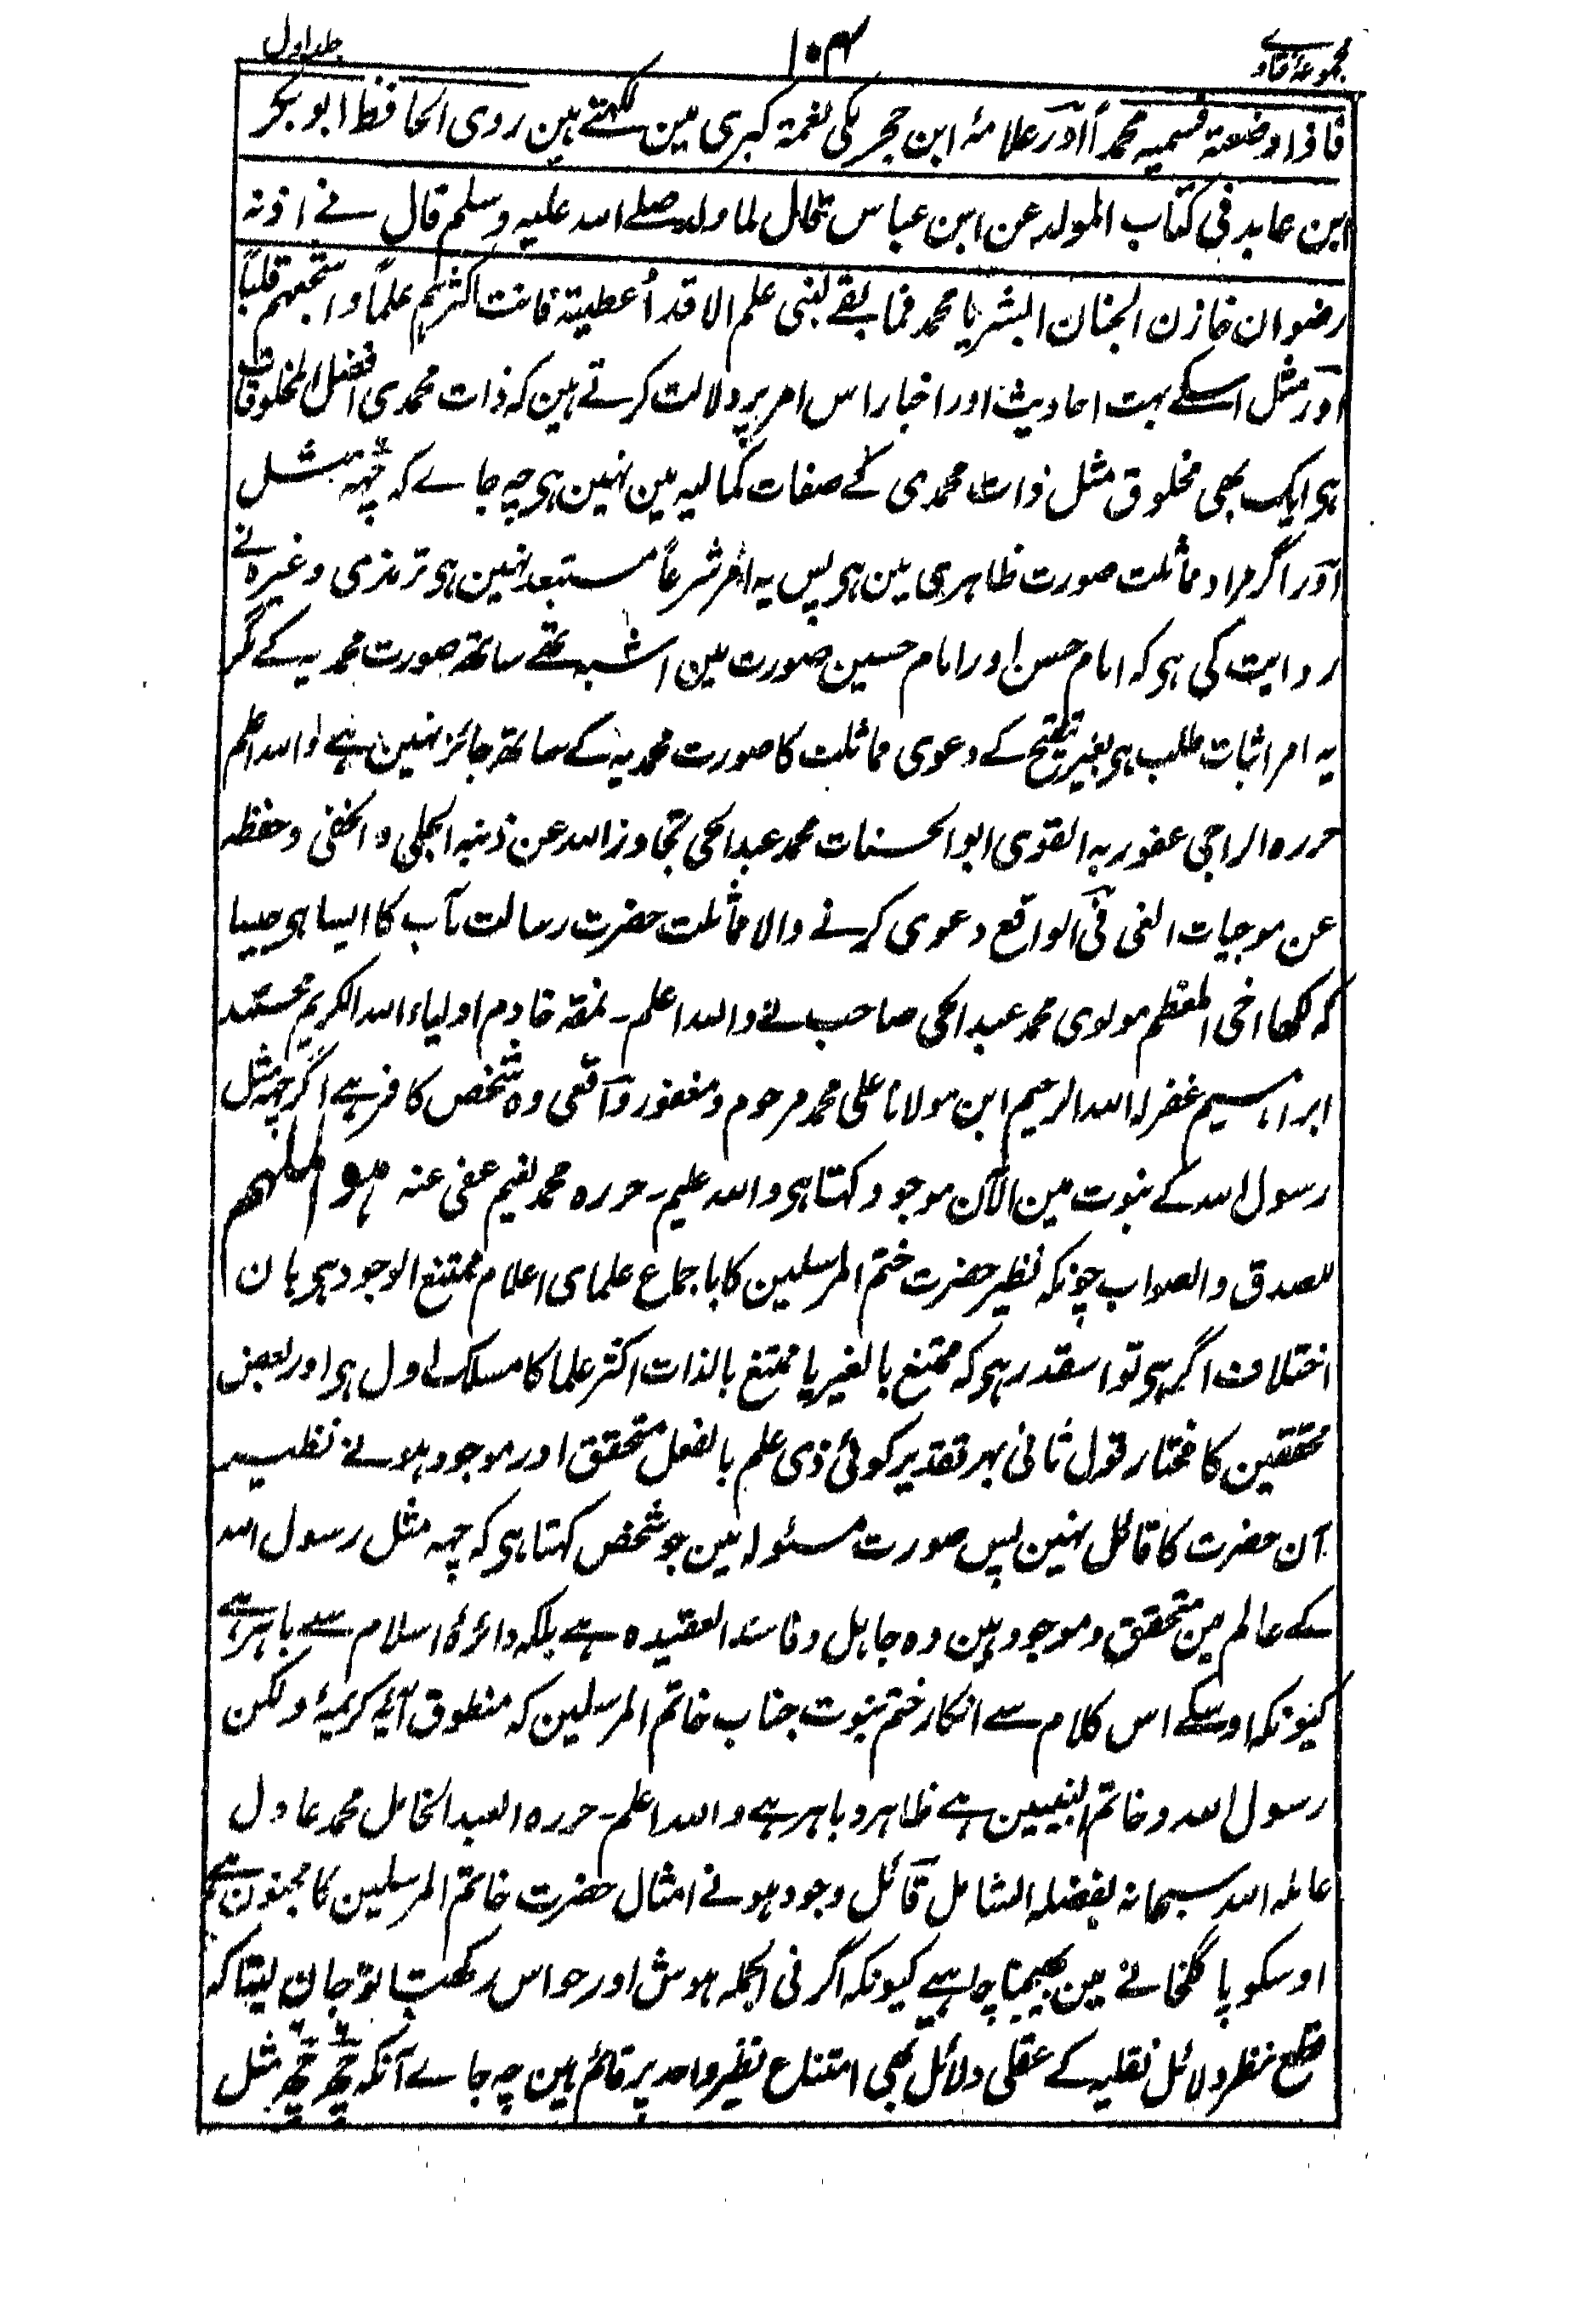 مجموعۂ فتاوے ۱۰۴ جلد اول
فاذا وضعتہ فسمیہ محمداً اور علامۂ ابن حجر مکی نعمۃ کبری مین لکھتے ہین روی الحافظ ابو بکر
ابن عابد فی کتاب المولد عن ابن عباس قال لما ولد صلے اللہ علیہ وسلم قال فے اذنہ
رضوان خازن الجنان ابشر یا محمد فما بقے لنبی علم الا قد اُعطیتہ فانت اکثرہم علماً و اشجعہم قلباً
اور مثل اسکے بہت احادیث اور اخبار اس امر پر دلالت کرتے ہین کہ ذات محمدی افضل المخلوقات
ہی ایک بھی مخلوق مثل ذات محمدی کے صفات کمالیہ مین نہین ہی چہ جاے کہ چھہ مثل
اور اگر مراد مماثلت صورت ظاہری مین ہی پس یہ امر شرعاً مستبعد نہین ہی ترمذی وغیرہ نے
روایت کی ہی کہ امام حسن اور امام حسین صورت مین اشبہ تھے ساتھ صورت محمدیہ کے مگر
یہ امر اثبات طلب ہی بغیر تنقیح کے دعوی مماثلت کا صورت محمدیہ کے ساتھ جائز نہین ہے واللہ اعلم
حررہ الراجی عفو ربہ القوی ابو الحسنات محمد عبد الحی تجاوز اللہ عن ذنبہ الجلی و الخفی و حفظہ
عن موجبات الغی فی الواقع دعوی کرنے والا مماثلت حضرت رسالت مآب کا ایسا ہی جیسا
کہ لکھا اخی المعظم مولوی محمد عبد الحی صاحب نے واللہ اعلم۔ نمقہ خادم اولیاء اللہ الکریم محمد
ابراہیم غفر لہ اللہ الرحیم ابن مولانا علی محمد مرحوم و مغفور واقعی وہ شخص کافر ہے اگر چھہ مثل
رسول اللہ کے نبوت مین الآن موجود کہتا ہی واللہ علیم۔ حررہ محمد نعیم عفی عنہ ہو الملہم
للصدق والصواب چونکہ نظیر حضرت ختم المرسلین کا باجماع علمای اعلام ممتنع الوجود ہی ہان
اختلاف اگر ہی تو اسقدر ہی کہ ممتنع بالغیر یا ممتنع بالذات اکثر علما کا مسلک اول ہی اور بعض
محققین کا مختار قول ثانی بہر تقدیر کوئی ذی علم بالفعل متحقق اور موجود ہونے نظیر
آن حضرت کا قائل نہین پس صورت مسئولہ مین جو شخص کہتا ہی کہ چہہ مثل رسول اللہ
کے عالم مین متحقق و موجود ہین وہ جاہل و فاسد العقیدہ ہے بلکہ دائرۂ اسلام سے باہر ہے
کیونکہ اوسکے اس کلام سے انکار ختم نبوت جناب خاتم المرسلین کہ منطوق آیۂ کریمۂ ولکن
رسول اللہ و خاتم النبیین ہے ظاہر و باہر ہے واللہ اعلم۔ حررہ العبد الخامل محمد عادل
عاملہ اللہ سبحانہ بفضلہ الشامل قائل وجود ہونے امثال حضرت خاتم المرسلین کا مجنون ہے
اوسکو پاگلخانے مین بھیجنا چاہیے کیونکہ اگر فی الجملہ ہوش اور حواس رکھتا تو جان لیتا کہ
قطع نظر دلائل نقلیہ کے عقلی دلائل بھی امتناع نظیر واحد پر قائم ہین چہ جاے آنکہ چھہ چھہ مثل